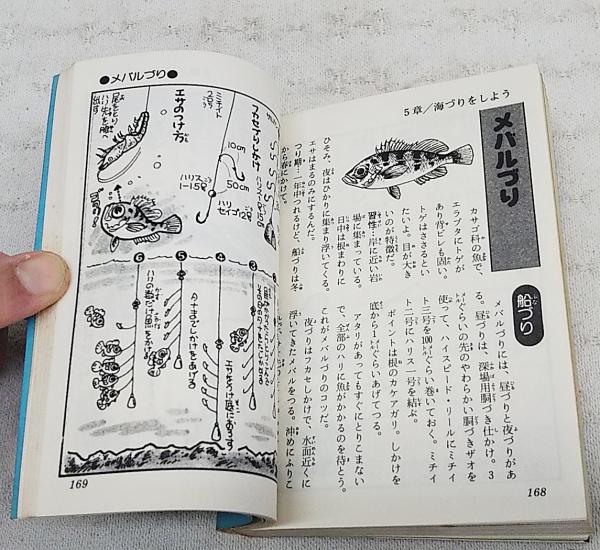 5章/海づりをしよう
メバルづり
カサゴ科の魚で、
エラブタにトゲが
あり背ビレも固い。
トゲはささるとい
たいよ。目が大き
いのが特徴だ。
習性…岸に近い岩
場に集まっている。
日中は根まわりに
ひそみ、夜はひかりに集まり浮いてくる。
エサはまるのみにするんだ。
つり期…年中つれるけど、船づりは冬
から春にかけて。
船づり
メバルづりには、昼づりと夜づりがあ
る。昼づりは、深場用胴づき仕かけ。3
ぐらいの先のやわらかい胴づきザオを
使って、ハイスピード・リールにミチイ
ト三号を100ぐらい巻いておく。ミチイ
ト二号にハリス一号を結ぶ。
ポイントは根のカケアガリ。しかけを
底から1ぐらいあげてつる。
アタリがあってもすぐにとりこまない
で、全部のハリに魚がかかるのを待とう。
これがメバルづりのコツだ。
夜づりはフカセしかけで、水面近くに
浮いてきたメバルをつる。沖めにふりこ
168
●メバルづり●
フカセづりしかけ
ミチイト
2号
10cm
50cm
ハリス
1~1.5号
ハリ
セイゴ12号
エサのつけ方
尾をとり
ハリ先を腹へ
出す
3
4
エリをつけ底におろす
5
今までしかけをあげる
6
ハリの数だけ魚をかける
169